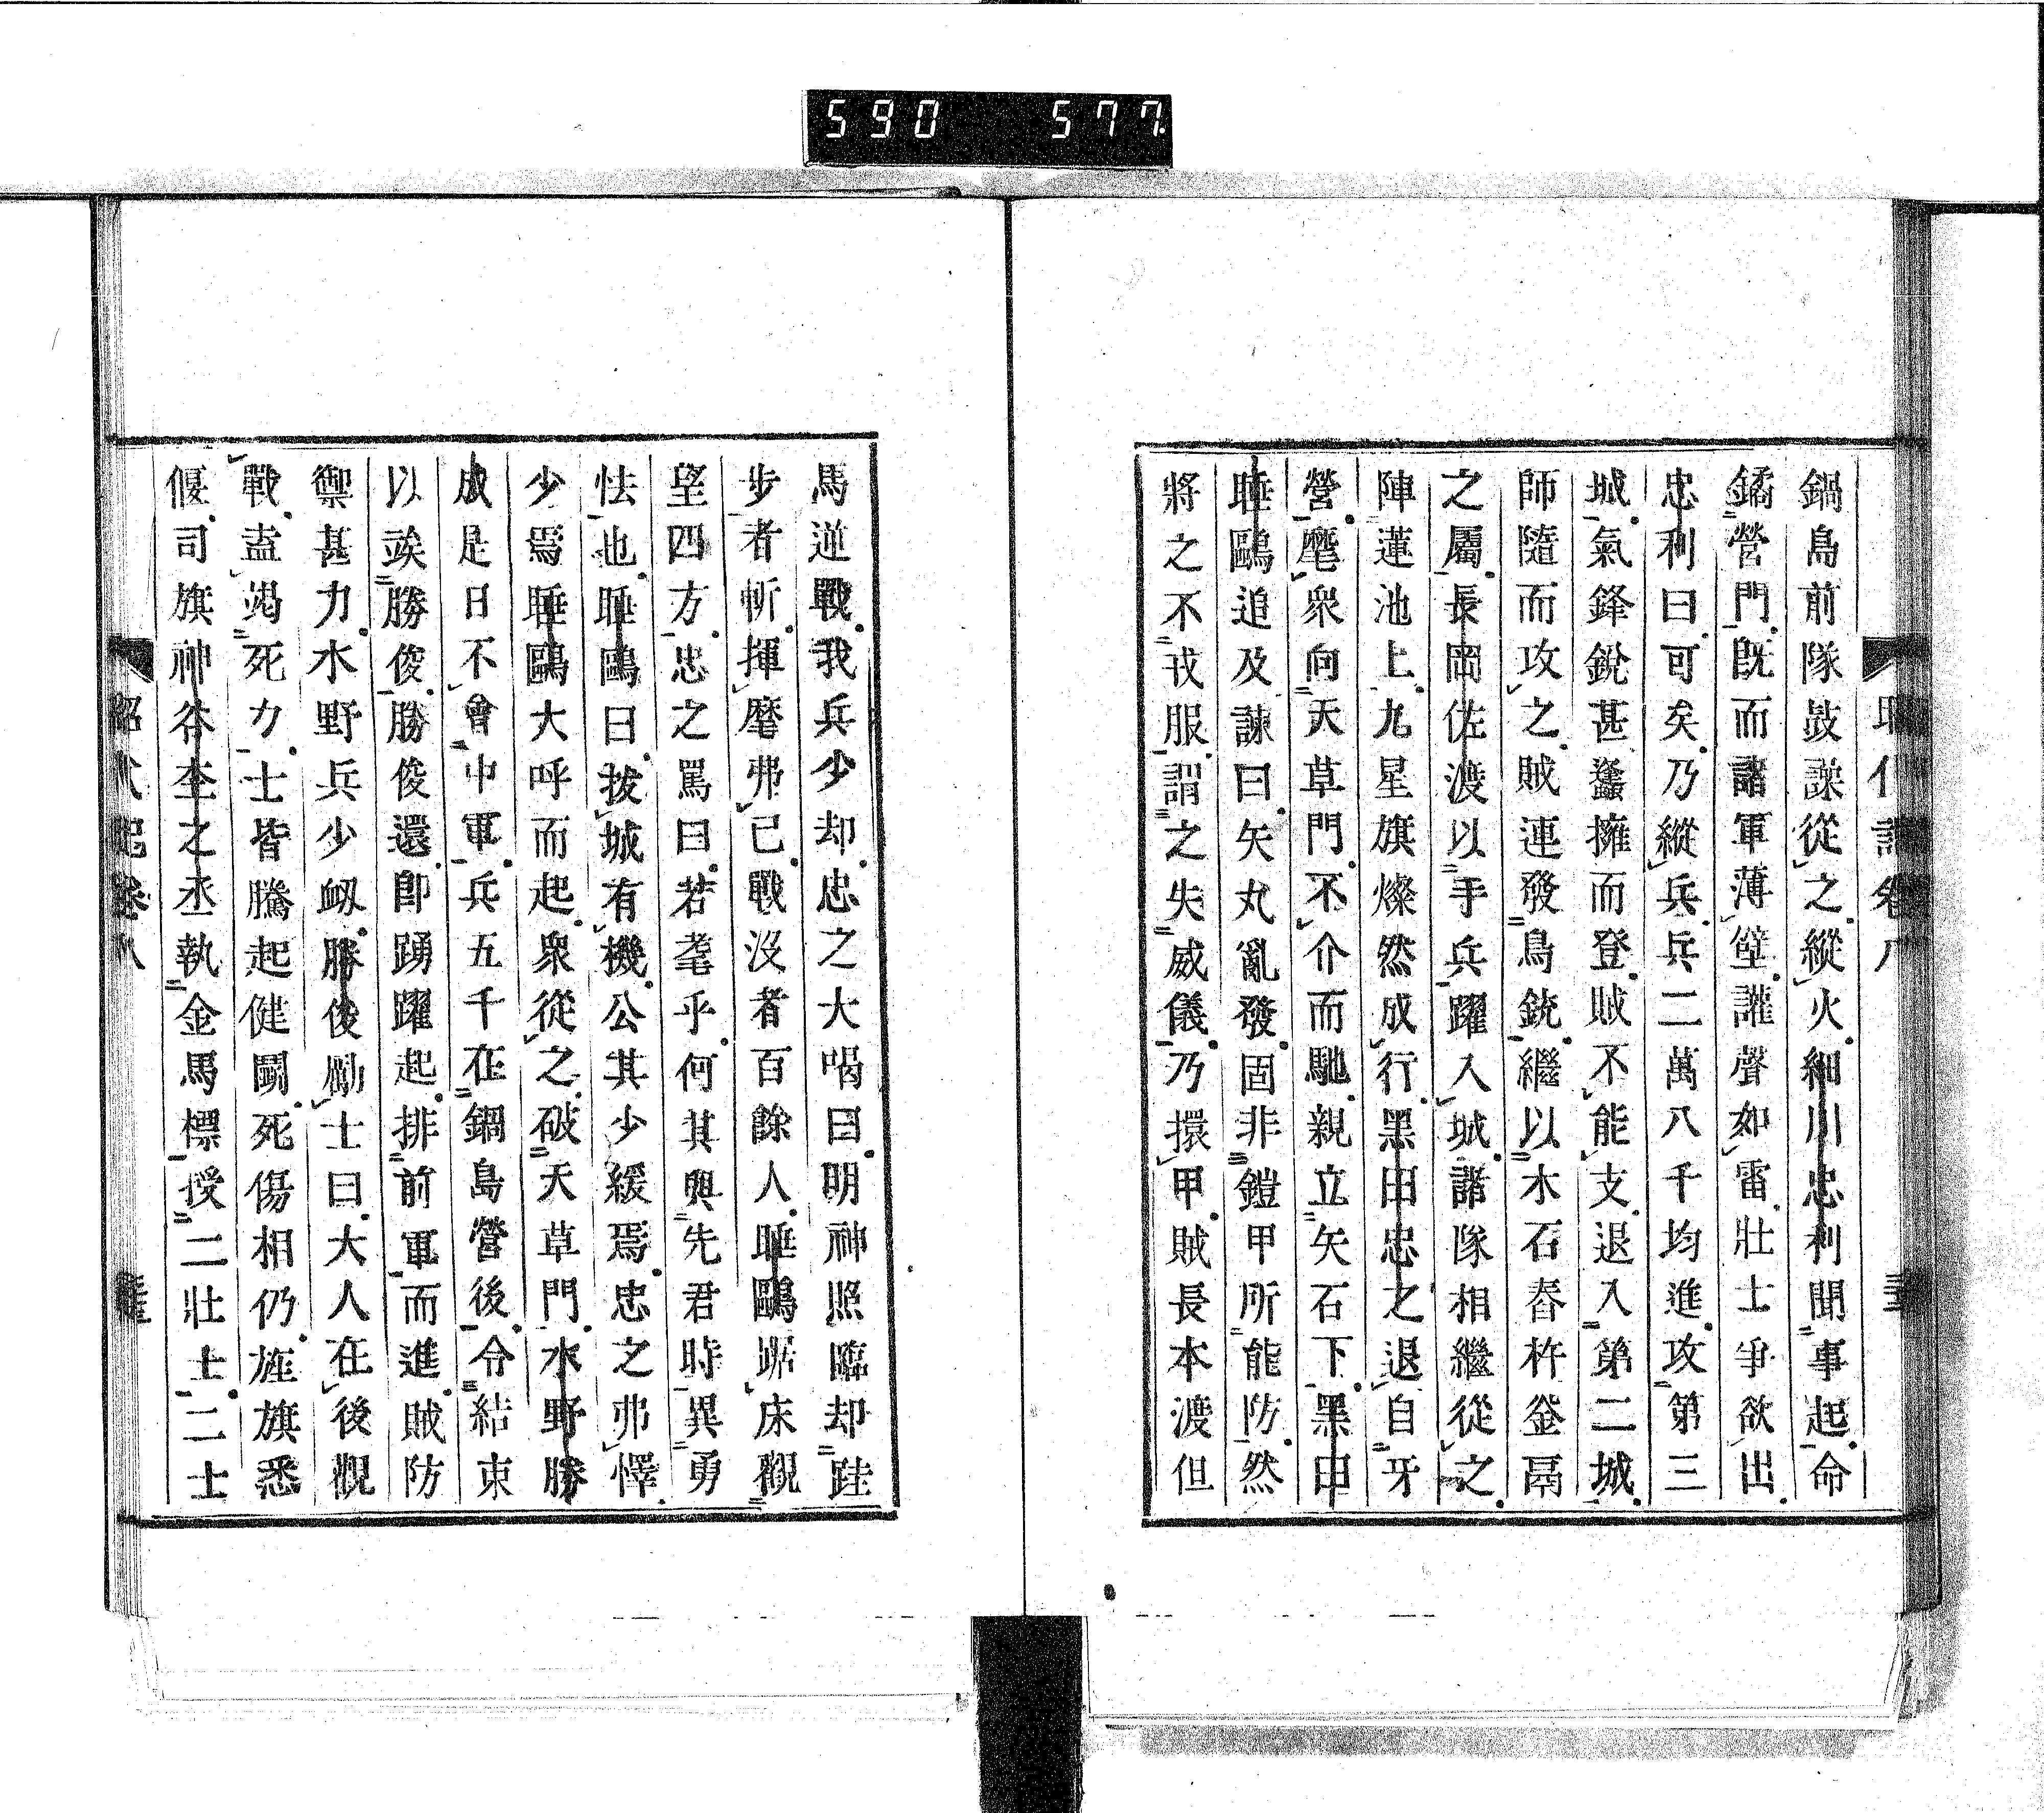 590 577
鍋島前隊鼓譟從之縱火細川忠利聞事起命
鐍營門既而諸軍薄壁讙聲如雷壯士爭欲出
忠利曰可矣乃縱兵兵二萬八千均進攻第三
城氣鋒銳甚蠭擁而登賊不能支退入第二城
師隨而攻之賊連發鳥銃繼以木石舂杵釡鬲
之屬長岡佐渡以手兵躍入城諸隊相繼從之
陣蓮池上九星旗燦然成行黑田忠之退自牙
營麾衆向天草門不介而馳親立矢石下黑田
睡鷗追及諫曰矢丸亂發固非鎧甲所能防然
將之不戎服謂之失威儀乃擐甲賊長本渡但
馬逆戰我兵少却忠之大喝曰明神照臨却跬
步者斬揮麾弗已戰沒者百餘人睡鷗踞床觀
望四方忠之罵曰若耄乎何其與先君時異勇
怯也睡鷗曰拔城有機公其少緩焉忠之弗懌
少焉睡鷗大呼而起衆從之破天草門水野勝
成是日不會中軍兵五千在鍋島營後令結束
以竢勝俊勝俊還卽踴躍起排前軍而進賊防
禦甚力水野兵少衂勝俊勵士曰大人在後觀
戰盍竭死力士皆騰起健鬪死傷相仍旌旗悉
偃司旗神谷杢之丞執金馬標授二壯士二士